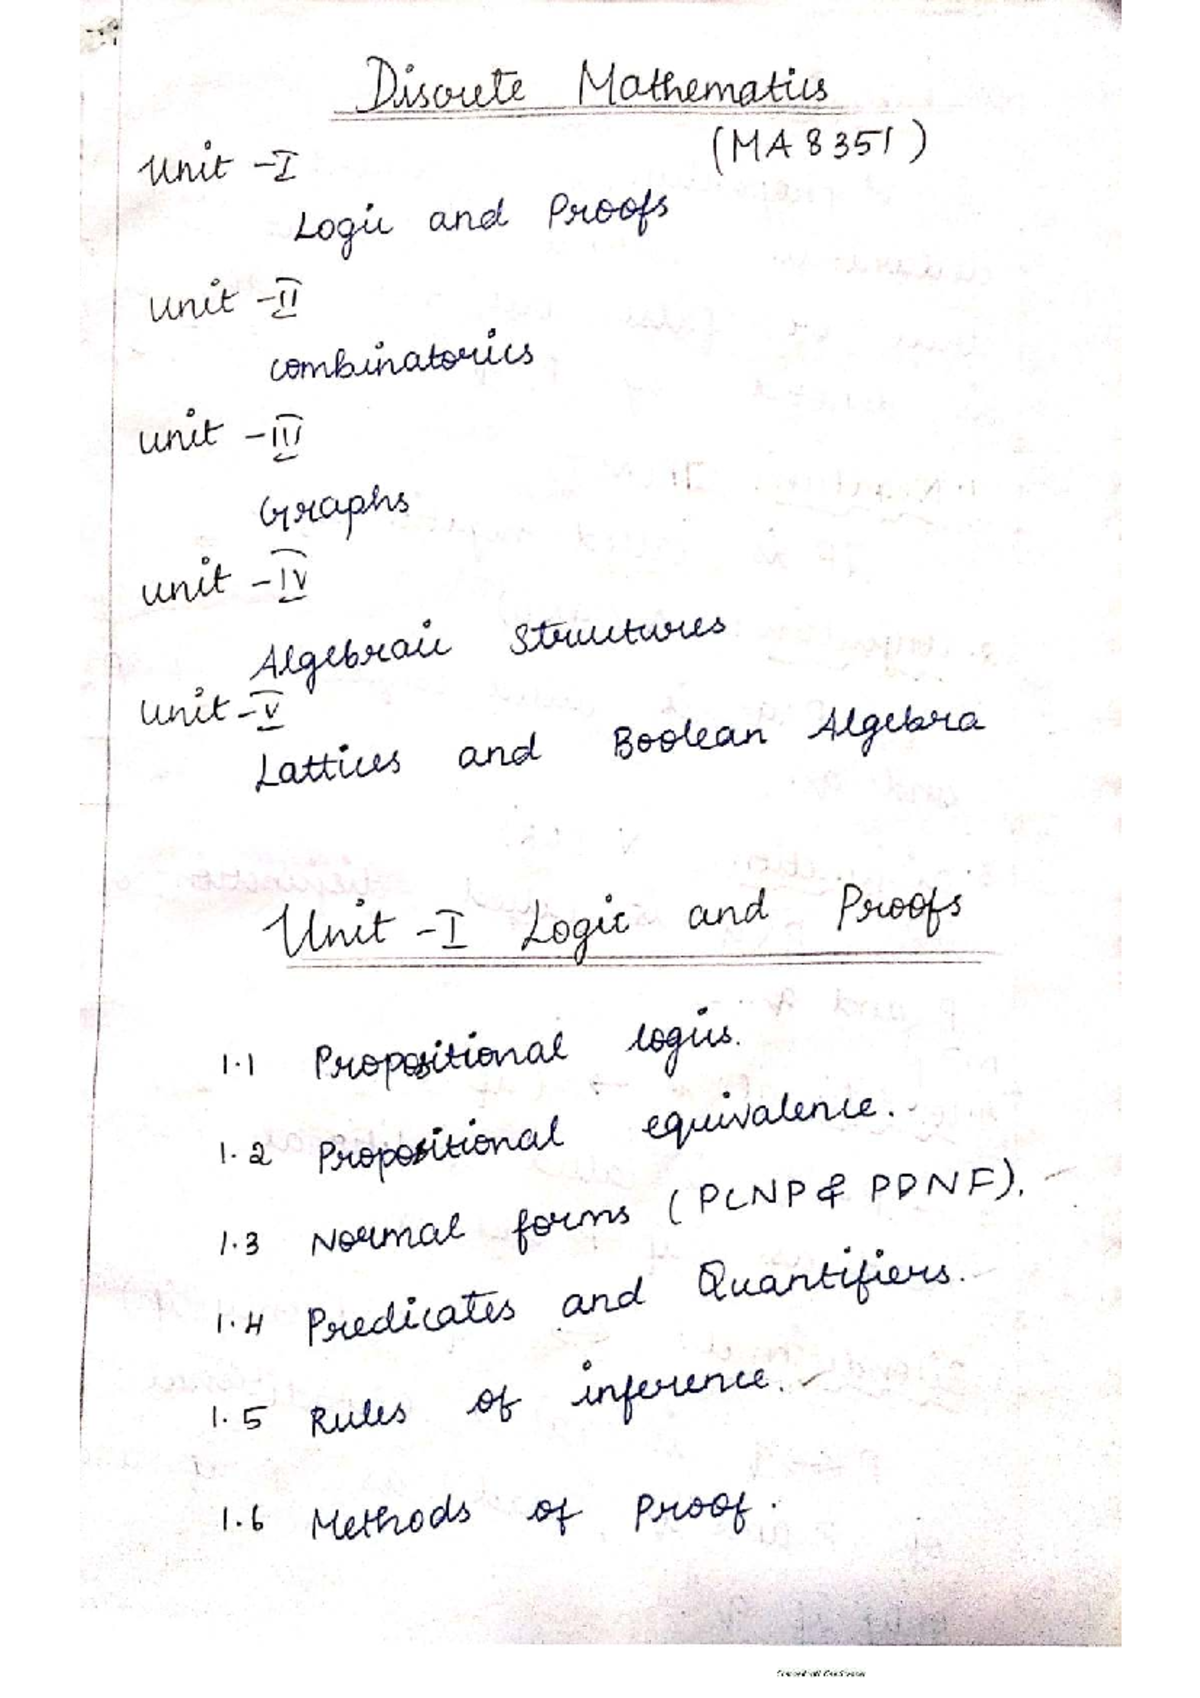 Discrete Mathematics
(MA8351)
Unit - I
Logic and Proofs
Unit - II
combinatorics
unit - III
Graphs
unit - IV
Algebraic Structures
Unit - V
Lattices and Boolean Algebra
Unit - I Logic and Proofs
1.1 Propositional logics.
1.2 Propositional equivalence.
1.3 Normal forms (PCNP & PDNF).
1.4 Predicates and Quantifiers.
1.5 Rules of inference.
1.6 Methods of Proof.